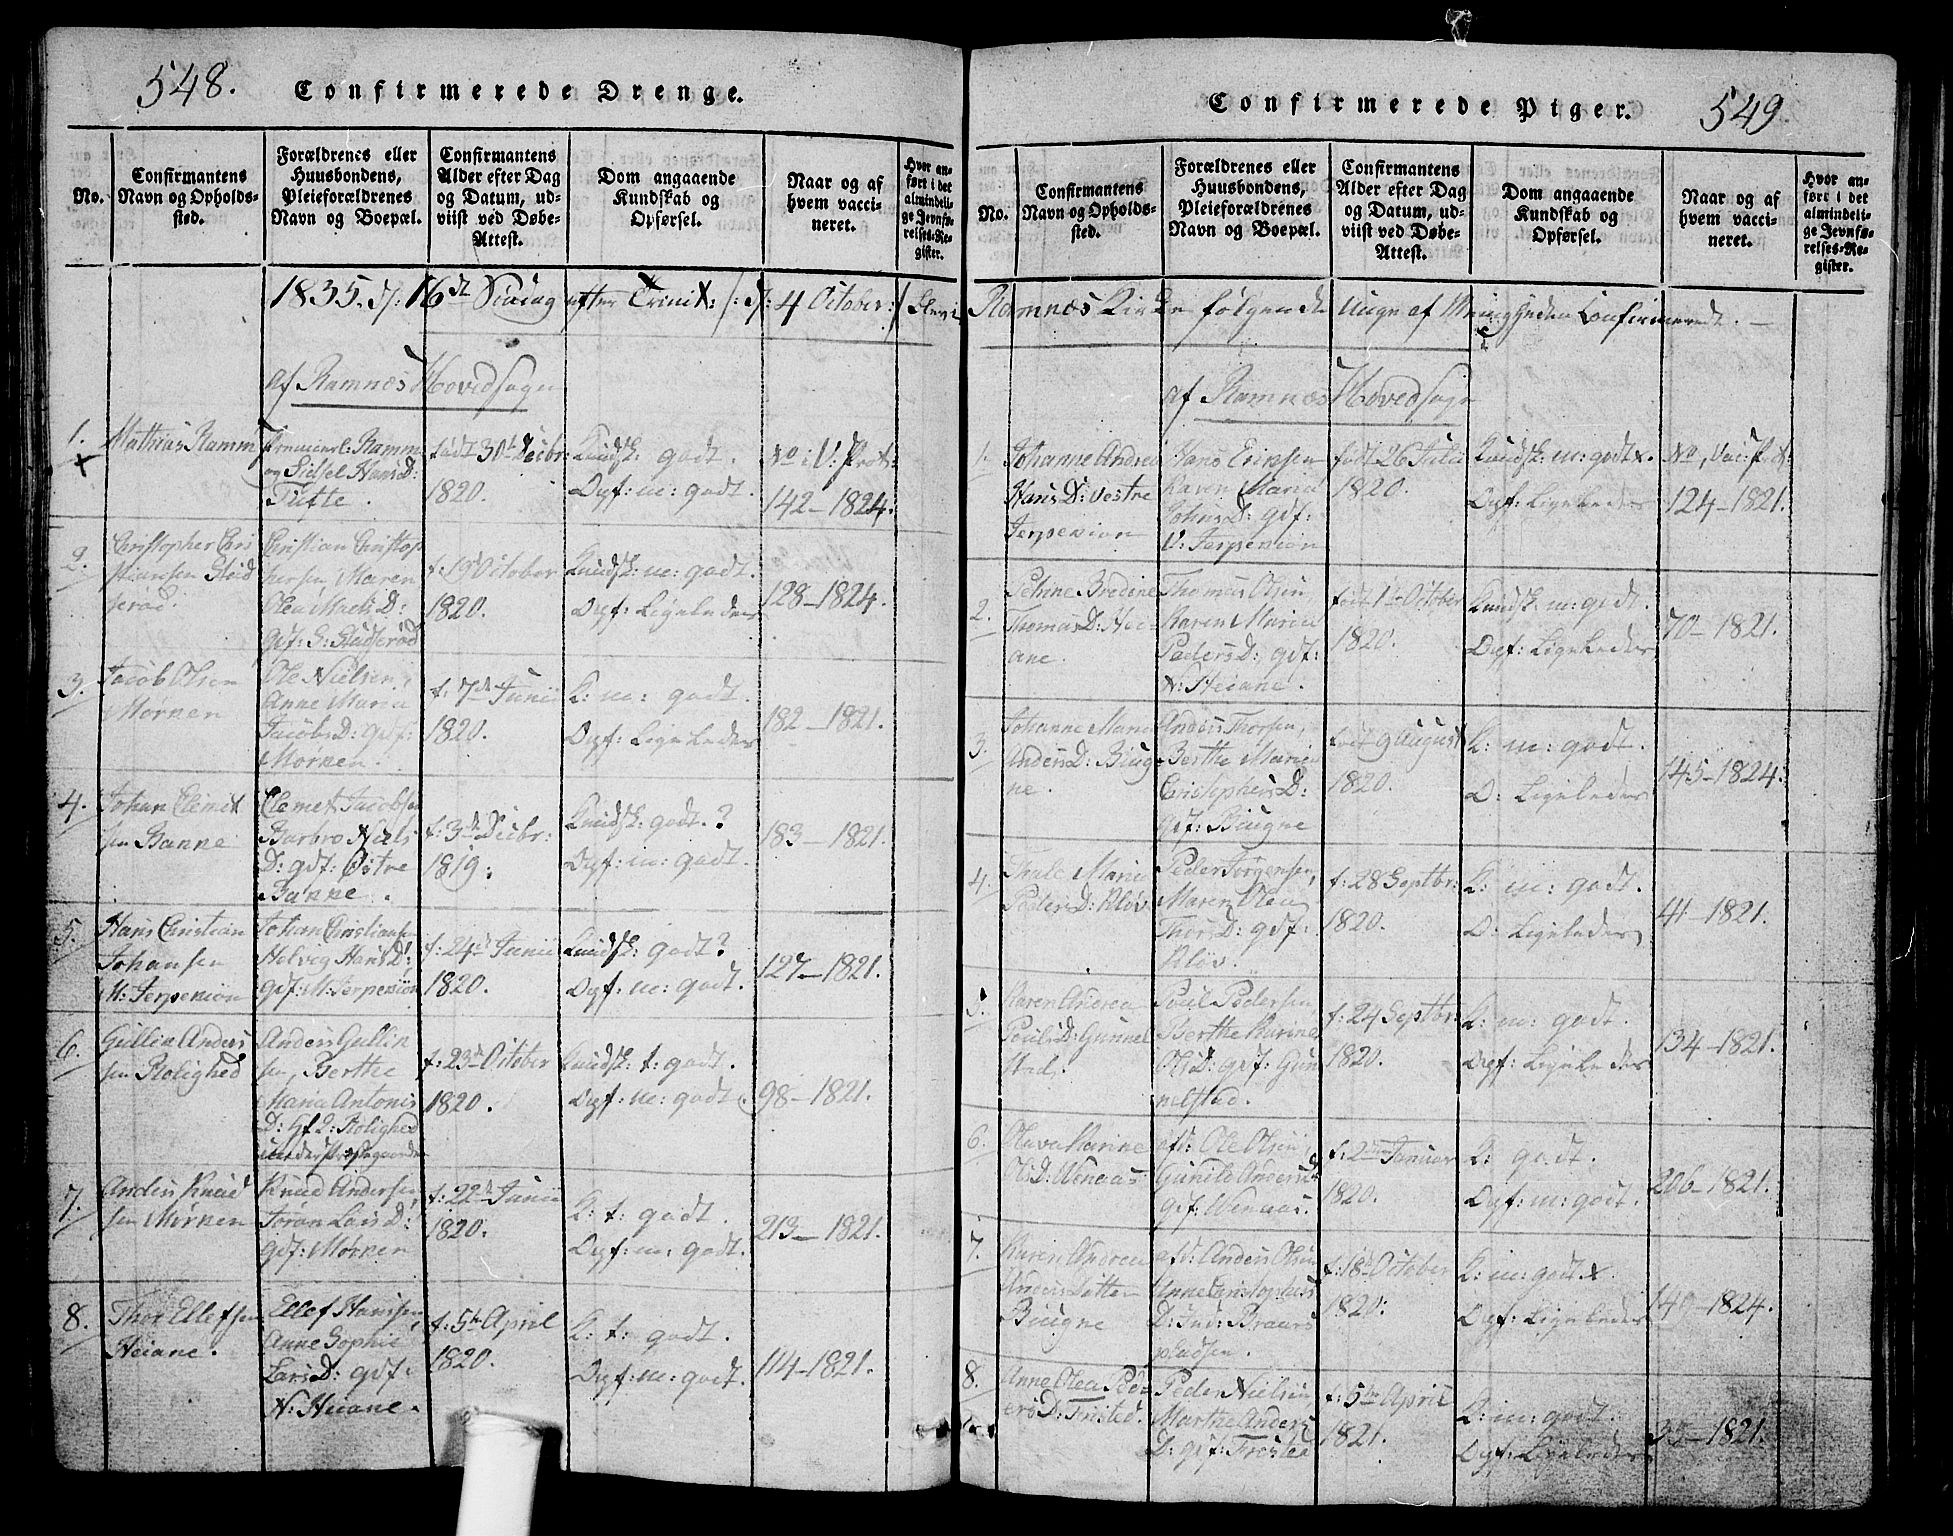 548.
Confirmerede Drenge.
No.
Confirmantens
Navn og Opholds-
sted.
Forældrenes eller
Huusbondens,
Pleieforældrenes
Navn og Boepæl.
Confirmantens
Alder efter Dag
og Datum, ud-
viist ved Døbe-
Attest.
Dom angaaende
Kundskab og
Opførsel.
Naar og af
hvem vacci-
neret.
Hvor an-
ført i det
almindeli-
ge Jevnfø-
relses-Re-
gister.
1835. d: 16de Søndag efter Trinit: /: d: 4 October :/
af Ramnæs Hovedsogn
1.
Mathias Ramm
Premierl: Ramm
og Sidsel HansD:
Tufte.
født 30te Decbr:
1820.
Kundsk: godt.
Opf: m: godt.
No i V: Prot:
142-1824.
2.
Christopher Chri
stiansen Stad
serød.
Christian Christop
hersen, Maren
Olea MadsD:
gdf: S: Stadserød
f: 19de October
1820.
Kundsk: m: godt.
Opf: Ligeledes
128-1824.
3.
Jacob Olsen
Mørken
Ole Nielsen,
Anne Maria
JacobsD: gdf:
Mørken.
f: 7de Junii
1820.
K: m: godt.
Opf: Ligeledes
182-1821.
4.
Johan Clemet
sen Banne
Clemet Jacobsen
Barbro Niels
D: gdf: Østre
Banne.
f: 3de Decbr:
1819.
Kundsk: godt?
Opf: m: godt.
183-1821.
5.
Hans Christian
Johansen
M: Jerpesiøn
Johan Christiansen
Helvig HansD:
gdf: M: Jerpesiøn
f: 24de Junii
1820.
Kundsk: godt?
Opf: m: godt.
127-1821.
6.
Gullin Anders
sen Rolighed
Anders Gullin
sen, Berthe
Maria Antonis
D: Gf I: Rolighed
under Præstegaarden
f: 23de October
1820.
Kundsk: t: godt.
Opf: m: godt.
98-1821.
7.
Anders Knud
sen Mørken
Knud Andersen,
Jøran LarsD:
gdf: Mørken
f: 22de Junii
1820.
K: t: godt.
Opf: m: godt.
213-1821.
8.
Thor Ellefsen
Heiane.
Ellef Hansen,
Anne Sophie
LarsD: gdf:
N: Heiane.
f: 5te April
1820.
K: t: godt.
Opf: m: godt.
114-1821.
Confirmerede Piger.
549.
No.
Confirmantens
Navn og Opholds-
sted.
Forældrenes eller
Huusbondens,
Pleieforældrenes
Navn og Boepæl.
Confirmantens
Alder efter Dag
og Datum, ud-
viist ved Døbe-
Attest.
Dom angaaende
Kundskab og
Opførsel.
Naar og af
hvem vacci-
neret.
Hvor an-
ført i det
almindeli-
ge Jevnfø-
relses-Re-
gister.
Ramnæs Kirke følgende Unge af Menigheden Confirmerede.
af Ramnæs Hovedsogn
1.
Johanne Andrea
HansD: Vestre
Jerpesiøn
Hans Ericksen
Karen Maria
JohnsD: gdf:
V: Jerpesiøn
født 26 Julii
1820.
Kundsk: m: godt
Opf: Ligeledes
No, Vac: P
124-1821.
2.
Petrine Bredine
ThomasD: Hei-
ane.
Thomas Olsen,
Karen Maria
PedersD: gdf:
N: Heiane.
født 1ste October
1820.
Kundsk: m: godt.
Opf: Ligeledes
70-1821.
3.
Johanne Maria
AndersD: Biug
ne.
Anders Thorsen,
Berthe Maria
ChristophersD:
gdf: Biugne
født 9 August
1820.
K: m: godt.
O: Ligeledes
145-1824.
4.
Thale Maria
PedersD: Kløv
Peder Jørgensen,
Maren Olea
ThorsD: gdf:
Kløv.
f: 28 Septbr:
1820.
K: m: godt.
O: Ligeledes
41-1821.
5.
Karen Andrea
PoulsD: Gunnel
sted.
Poul Pedersen
Berthe Karine
OlsD: gdf: Gun
nelsted.
f: 24 Septbr:
1820.
K: m: godt.
Opf: Ligeledes
134-1821.
6.
Olava Karine
OlsD: Wenaas
afd: Ole Olsen,
Gunild AndersD
gdf: Wenaas.
f: 2den Januar
1820.
K: godt.
Opf: m: godt.
206-1821.
7.
Karen Andrea
Andersdatter
Biugne
afd: Anders Olsen
Anne Christophers
D: Ind:
pladsen.
f: 18de October
1820.
K: m: godt
Opf: Ligeledes
140-1824.
8.
Anne Olea Ped-
ersD: Frøsted.
Peder Nielsen,
Marthe Anders
D: gdf: Frøsted
f: 5te April
1821.
K: m: godt.
Opf: Ligeledes
35-1821.